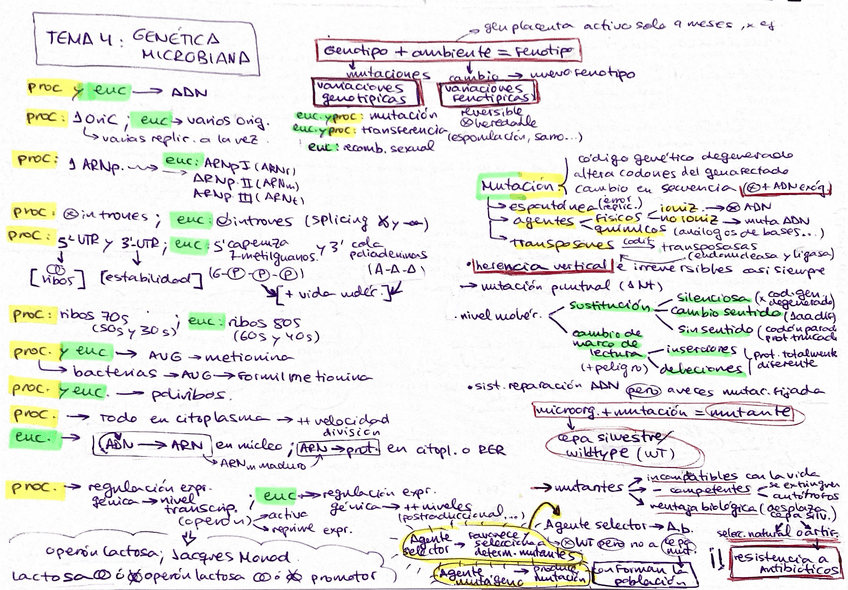 TEMA 4: GENÉTICA
MICROBIANA
proc y euc → ADN
proc: 1 oriC; euc → varios orig.
↳ varias replic. a la vez.
proc: 1 ARNp. → euc: ARNp I (ARNr)
ARNp. II (ARNm)
ARNp III (ARNt)
proc: ⊗ intrones; euc: intrones (splicing
proc: 5'-UTR y 3'-UTR; euc: 5' caperuza y 3' cola
7-metilguanos. poliadeninas
[ribos] [estabilidad] (G-P-P-P) (A-A-A)
[+ vida moléc.]
proc: ribos 70s; euc: ribos 80s
(50s y 30s) (60s y 40s)
proc. y euc → AUG → metionina
↳ bacterias → AUG → Formilmetionina
proc y euc. → polirribos.
proc → Todo en citoplasma → ++ velocidad
división
euc. → ADN → ARN en núcleo; ARN → prot. en citopl. o RER
↳ ARNm maduro
proc. → regulación expr. euc → regulación expr.
génica → nivel génica → ++ niveles
transcrip. (postraduccional...)
(operón) → activa
→ reprime expr.
operón lactosa; Jacques Monod.
lactosa ó operón lactosa ó promotor
gen placenta activo solo 9 meses, x ej
Genotipo + ambiente = Fenotipo
mutaciones cambio → nuevo fenotipo
variaciones genotípicas variaciones fenotípicas
euc. y proc: mutación reversible
⊗ heredable
euc. y proc: transferencia (esporulación,
euc: recomb. sexual
código genético degenerado
altera codones del gen afectado
Mutación: cambio en secuencia ⊗ + ADN exóg.
→ espontánea (error replic.)
→ agentes físicos ioniz. → ⊗ ADN
no ioniz → muta ADN
químicos (análogos de bases...)
→ transposones codif. transposasas
(endonucleasa y ligasa)
• herencia vertical e irreversibles casi siempre
→ mutación puntual (1 NT)
· nivel moléc. sustitución silenciosa (x cod. gen. degenerado)
cambio sentido (1aa dif)
sin sentido (codón parada prot. truncada)
cambio de marco de lectura (+ peligro) inserciones
deleciones
prot. totalmente diferente
• sist. reparación ADN pero a veces mutac. fijada
microorg. + mutación = mutante
cepa silvestre/
wildtype (WT)
→ mutantes → incompatibles con la vida
→ competentes → se extinguen
→ autótrofos
→ ventaja biológica (desplaza
cepa silv.)
selec. natural o artif.
¡! resistencia a
Antibióticos
Agente selector → favorece selecciona determ. mutantes
Agente selector → Ab.
→ ⊗ WT pero no a cepa mut.
Agente mutágeno → produce mutación
conforman la
población